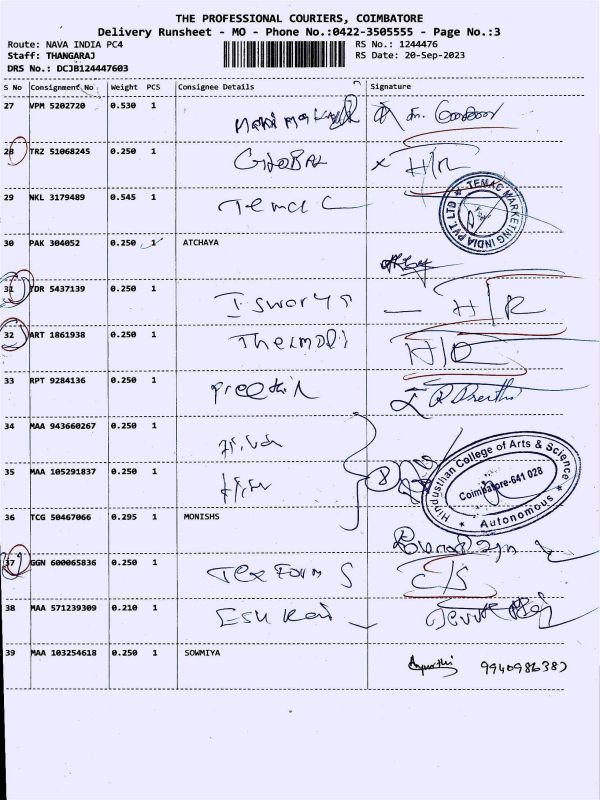 THE PROFESSIONAL COURIERS, COIMBATORE
Delivery Runsheet - MO - Phone No.:0422-3505555 - Page No.:3
Route: NAVA INDIA PC4
RS No.: 1244476
Staff: THANGARAJ
RS Date: 20-Sep-2023
DRS No.: DCJB124447603
S No Consignment No Weight PCS Consignee Details Signature
27 VPM 5202720 0.530 1
28 TRZ 51068245 0.250 1 GLOBAL H/R
29 NKL 3179489 0.545 1 Temac
TEMAC MARKETING INDIA PVT. LTD
30 PAK 304052 0.250 1 ATCHAYA
31 TDR 5437139 0.250 1 Iswarya H/R
32 ART 1861938 0.250 1 Thermoli
33 RPT 9284136 0.250 1
34 MAA 943660267 0.250 1
35 MAA 105291837 0.250 1 8
Hindusthan College of Arts & Science
Coimbatore-641 028
* Autonomous *
36 TCG 50467066 0.295 1 MONISHS
37 GGN 600065836 0.250 1 Tex Forms C/S
38 MAA 571239309 0.210 1
39 MAA 103254618 0.250 1 SOWMIYA